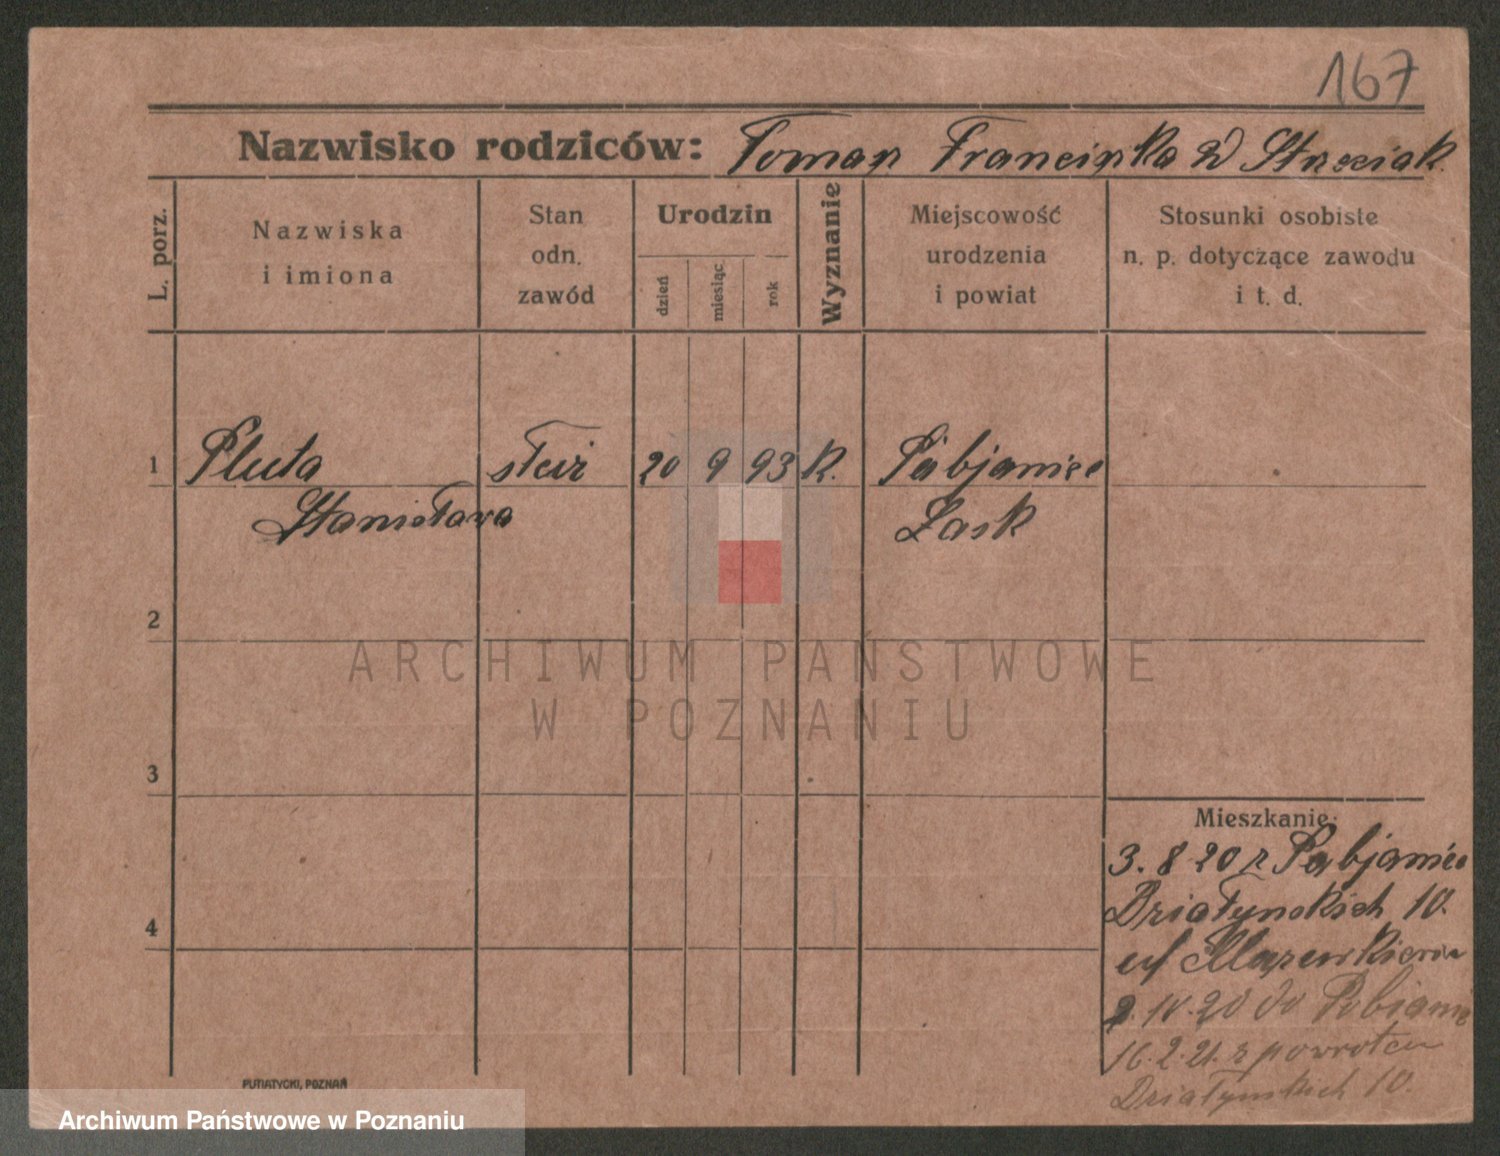 167
Nazwisko rodziców: Tomasz Franciszka z d Strzeciak
L. porz.
Nazwiska
i imiona
Stan
odn.
zawód
Urodzin
dzień
miesiąc
rok
Wyznanie
Miejscowość
urodzenia
i powiat
Stosunki osobiste
n. p. dotyczące zawodu
i t. d.
1 Pluta służ 20 9 93 K. Pabjanice
Stanisława Łask
2
ARCHIWUM PAŃSTWOWE
W POZNANIU
3
Mieszkanie:
3. 8 20 z Pabjanic
Działyńskich 10.
4
u/
2. 10. 20 do Pabianic
16. 2. 21. z powrotem
Działyńskich 10.
PUTIATYCKI, POZNAŃ
Archiwum Państwowe w Poznaniu